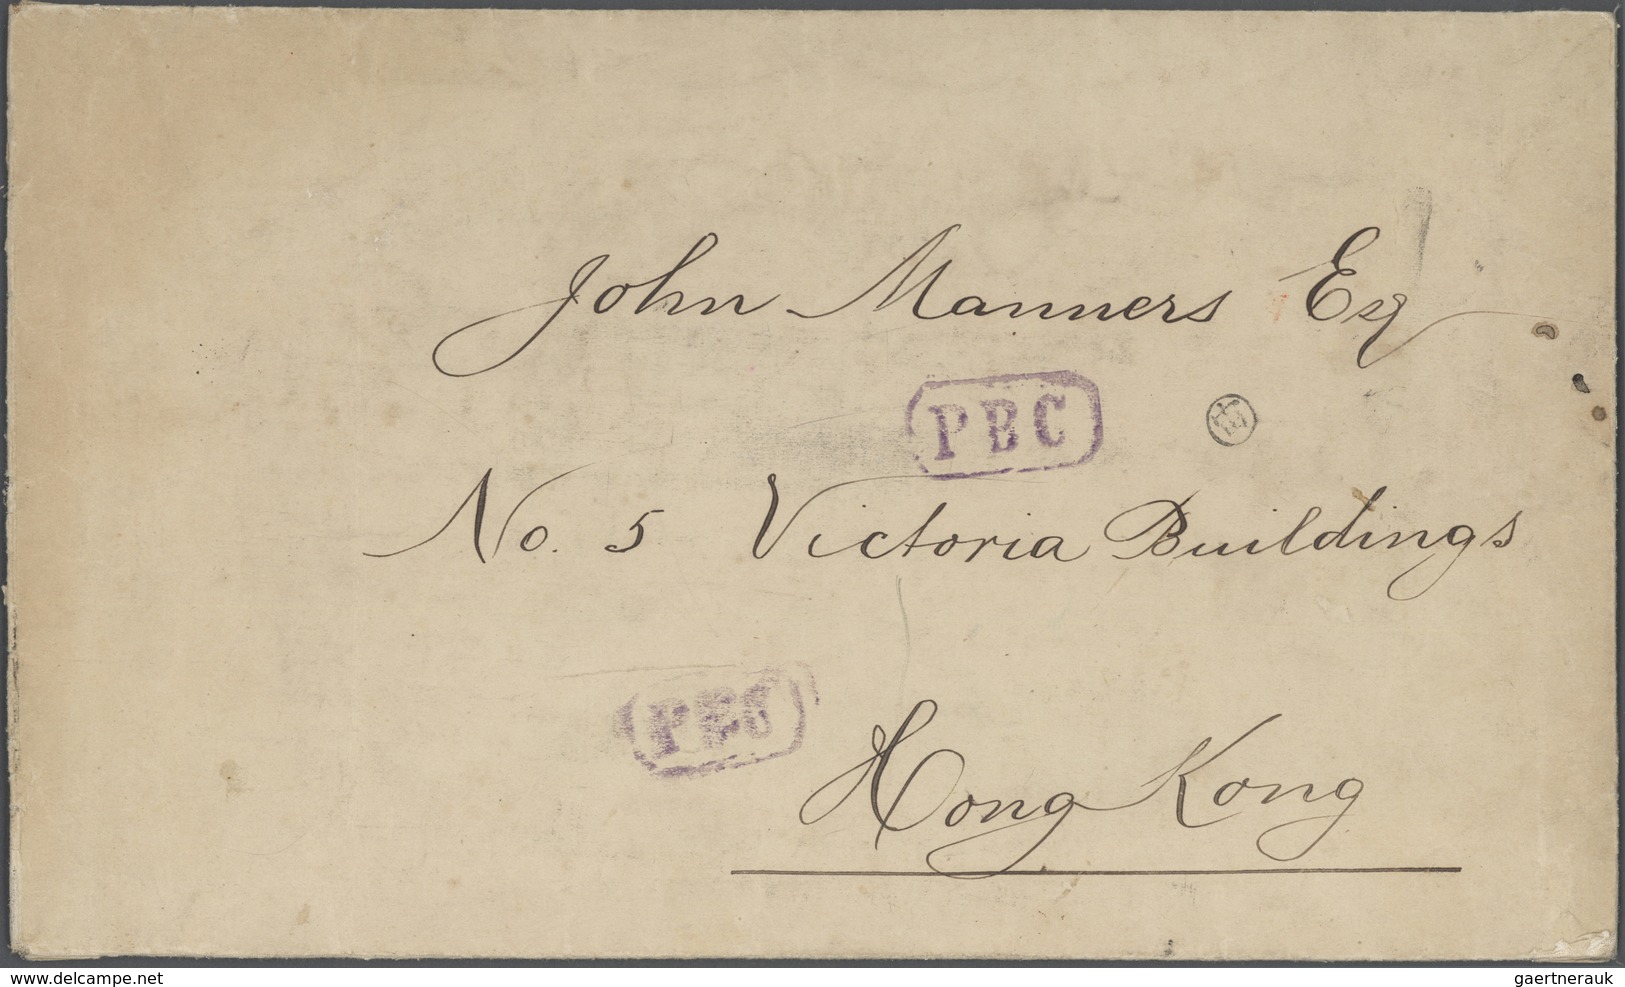 John Manners Esq
PBC
No. 5 Victoria Buildings
PBC
Hong Kong
www.delcampe.net
gaertnerauk